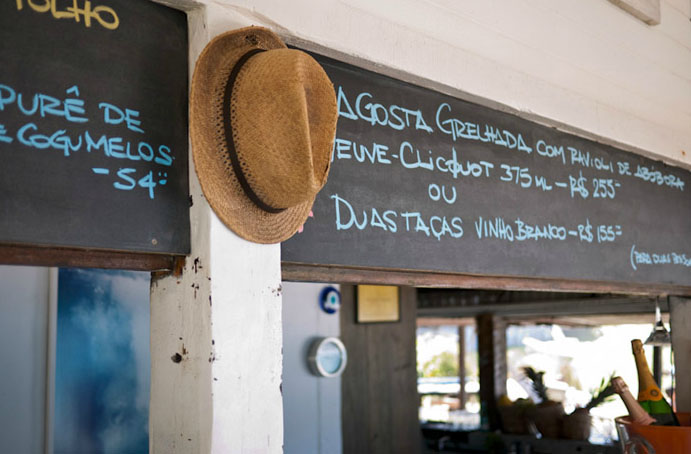 OLHO
PURÊ DE
COGUMELOS
-54=
AGOSTA GRELHADA COM RAVIOLI DE ABOBORA
EUVE-CLICQUOT 375 ML - R$ 255=
OU
DUAS TAÇAS VINHO BRANCO - R$ 155=
(PARA DUAS